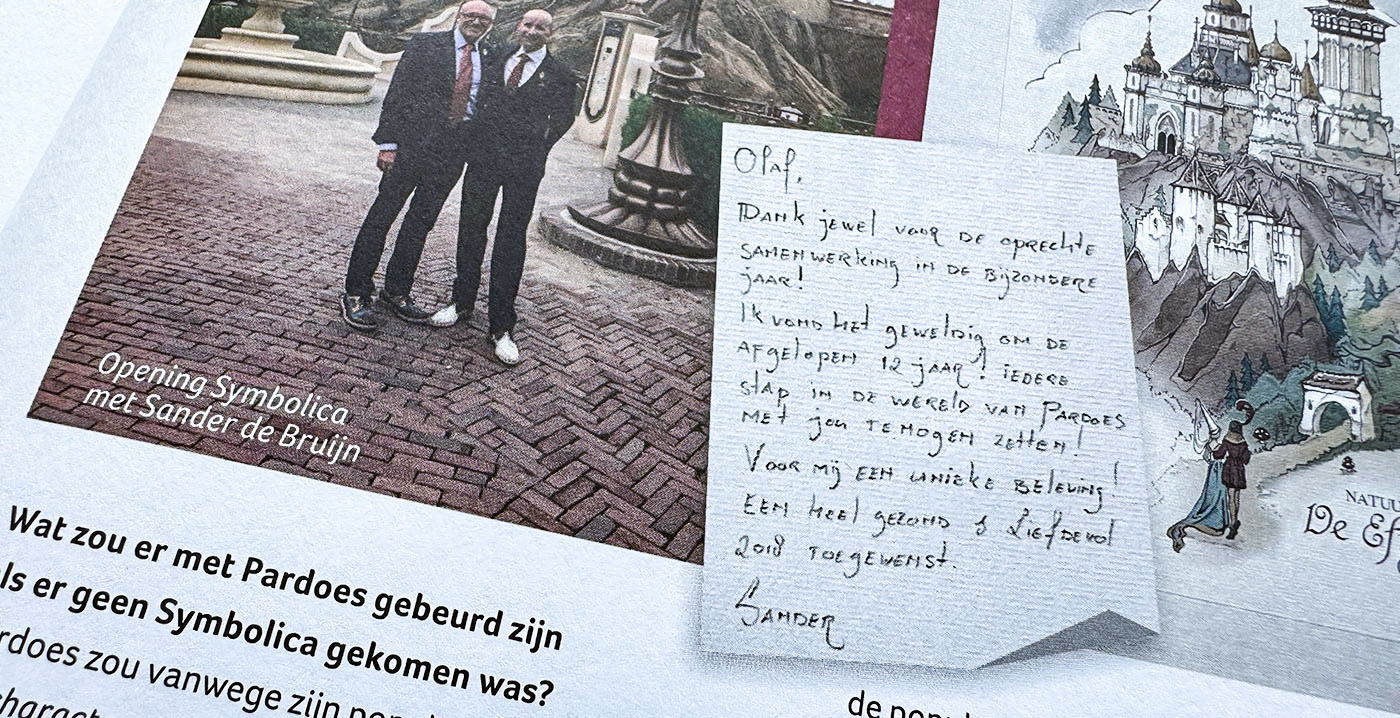 Opening Symbolica
met Sander de Bruijn
Olaf,
Dank jewel voor de oprechte
samenwerking in de bijzondere
jaar!
Ik vond het geweldig om de
afgelopen 12 jaar! iedere
stap in de wereld van Pardoes
met jou te mogen zetten!
Voor mij een unieke beleving!
Een heel gezond & liefdevol
2018 toegewenst.
Sander
Wat zou er met Pardoes gebeurd zijn
als er geen Symbolica gekomen was?
rdoes zou vanwege zijn
de
De Ef